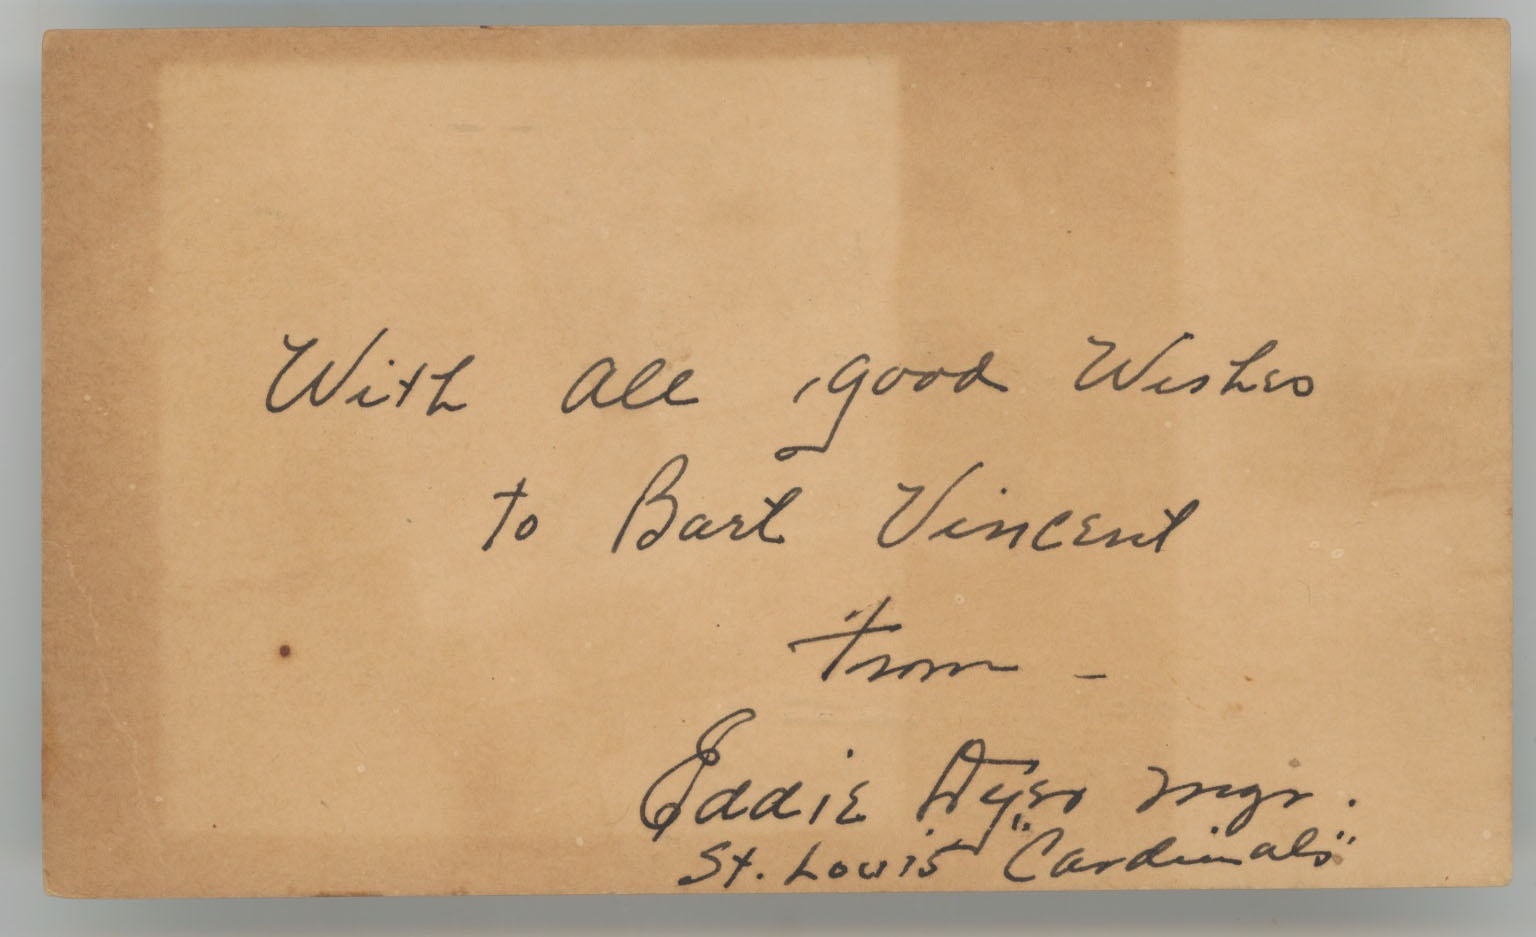 With all good Wishes
to Bart Vincent
from -
Eddie Dyer Mgr.
St. Louis "Cardinals"